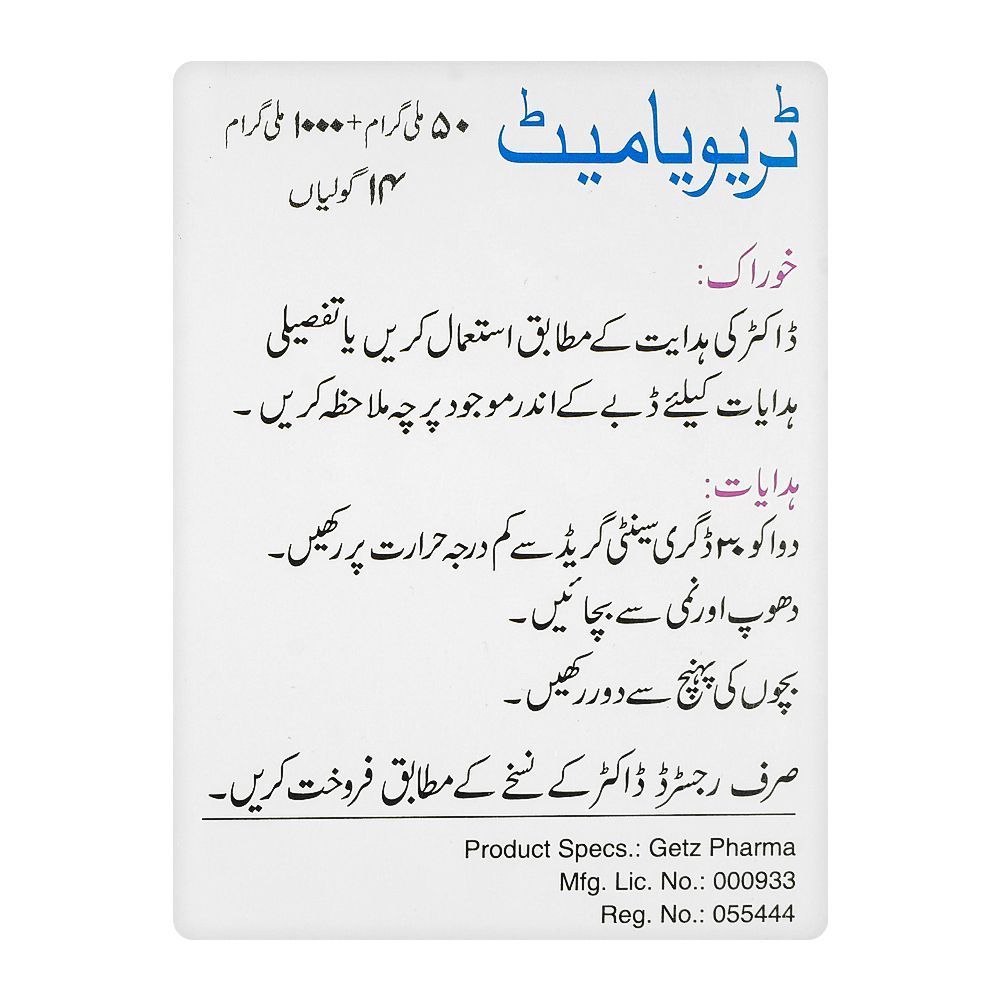 ٹریویامیٹ
۵۰ ملی گرام + ۱۰۰۰ ملی گرام
۱۴ گولیاں
خوراک:
ڈاکٹر کی ہدایت کے مطابق استعمال کریں یا تفصیلی
ہدایات کیلئے ڈبے کے اندر موجود پرچہ ملاحظہ کریں۔
ہدایات:
دوا کو ۳۰ ڈگری سینٹی گریڈ سے کم درجہ حرارت پر رکھیں۔
دھوپ اور نمی سے بچائیں۔
بچوں کی پہنچ سے دور رکھیں۔
صرف رجسٹرڈ ڈاکٹر کے نسخے کے مطابق فروخت کریں۔
Product Specs.: Getz Pharma
Mfg. Lic. No.: 000933
Reg. No.: 055444